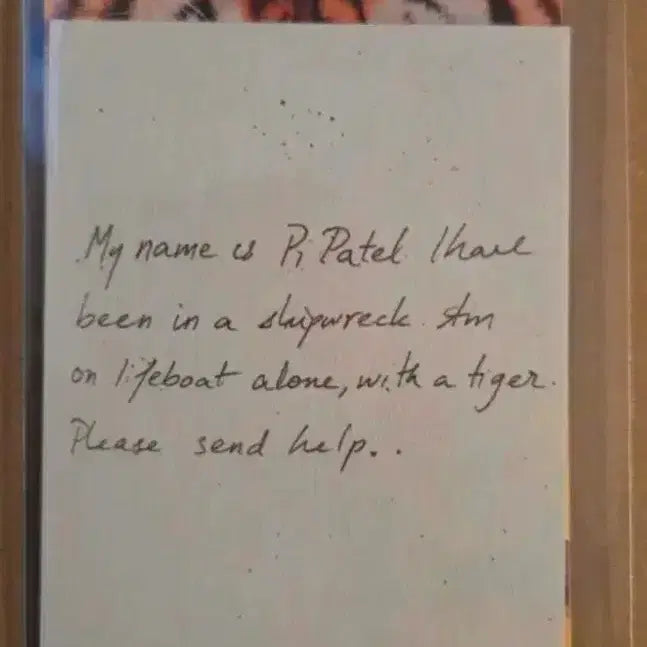 My name is Pi Patel I have
been in a shipwreck. Am
on lifeboat alone, with a tiger.
Please send help..